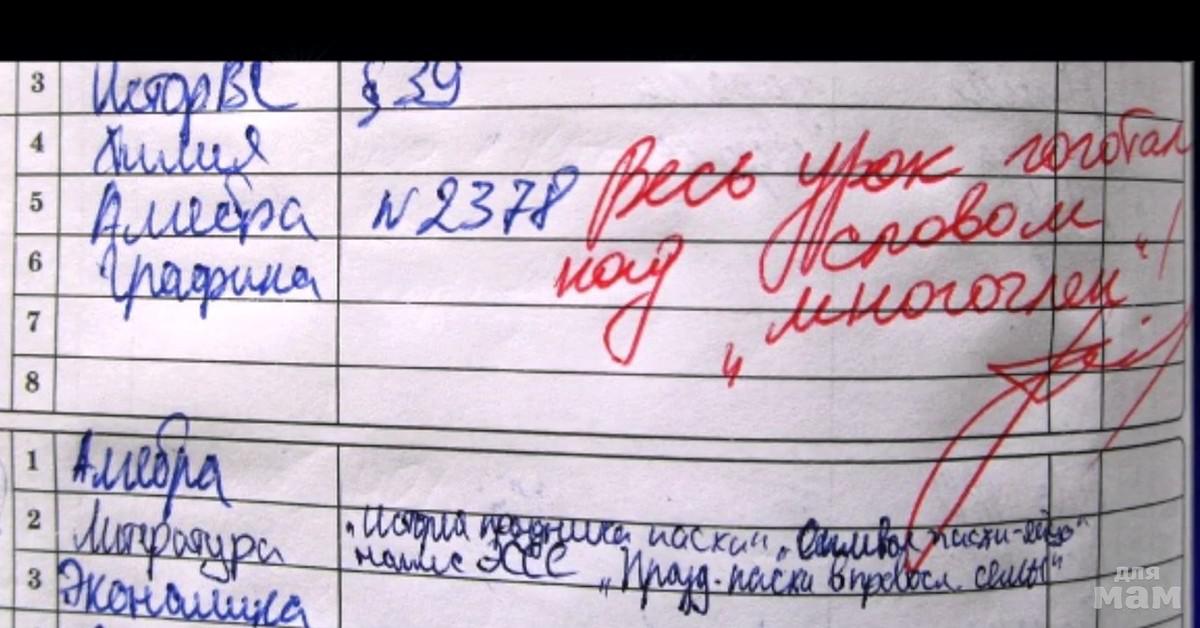 3 Истор ВС § 39
4 Химия
5 Алгебра N 2378
6 Графика
7
8
Весь урок гоготал
над словом
„многочлен"!
1 Алгебра
2 Литература „История праздника пасхи" „Символ пасхи-яйцо"
напис ЭССЕ „Празд. пасхи в правосл. семье"
3 Экономика
для
мам